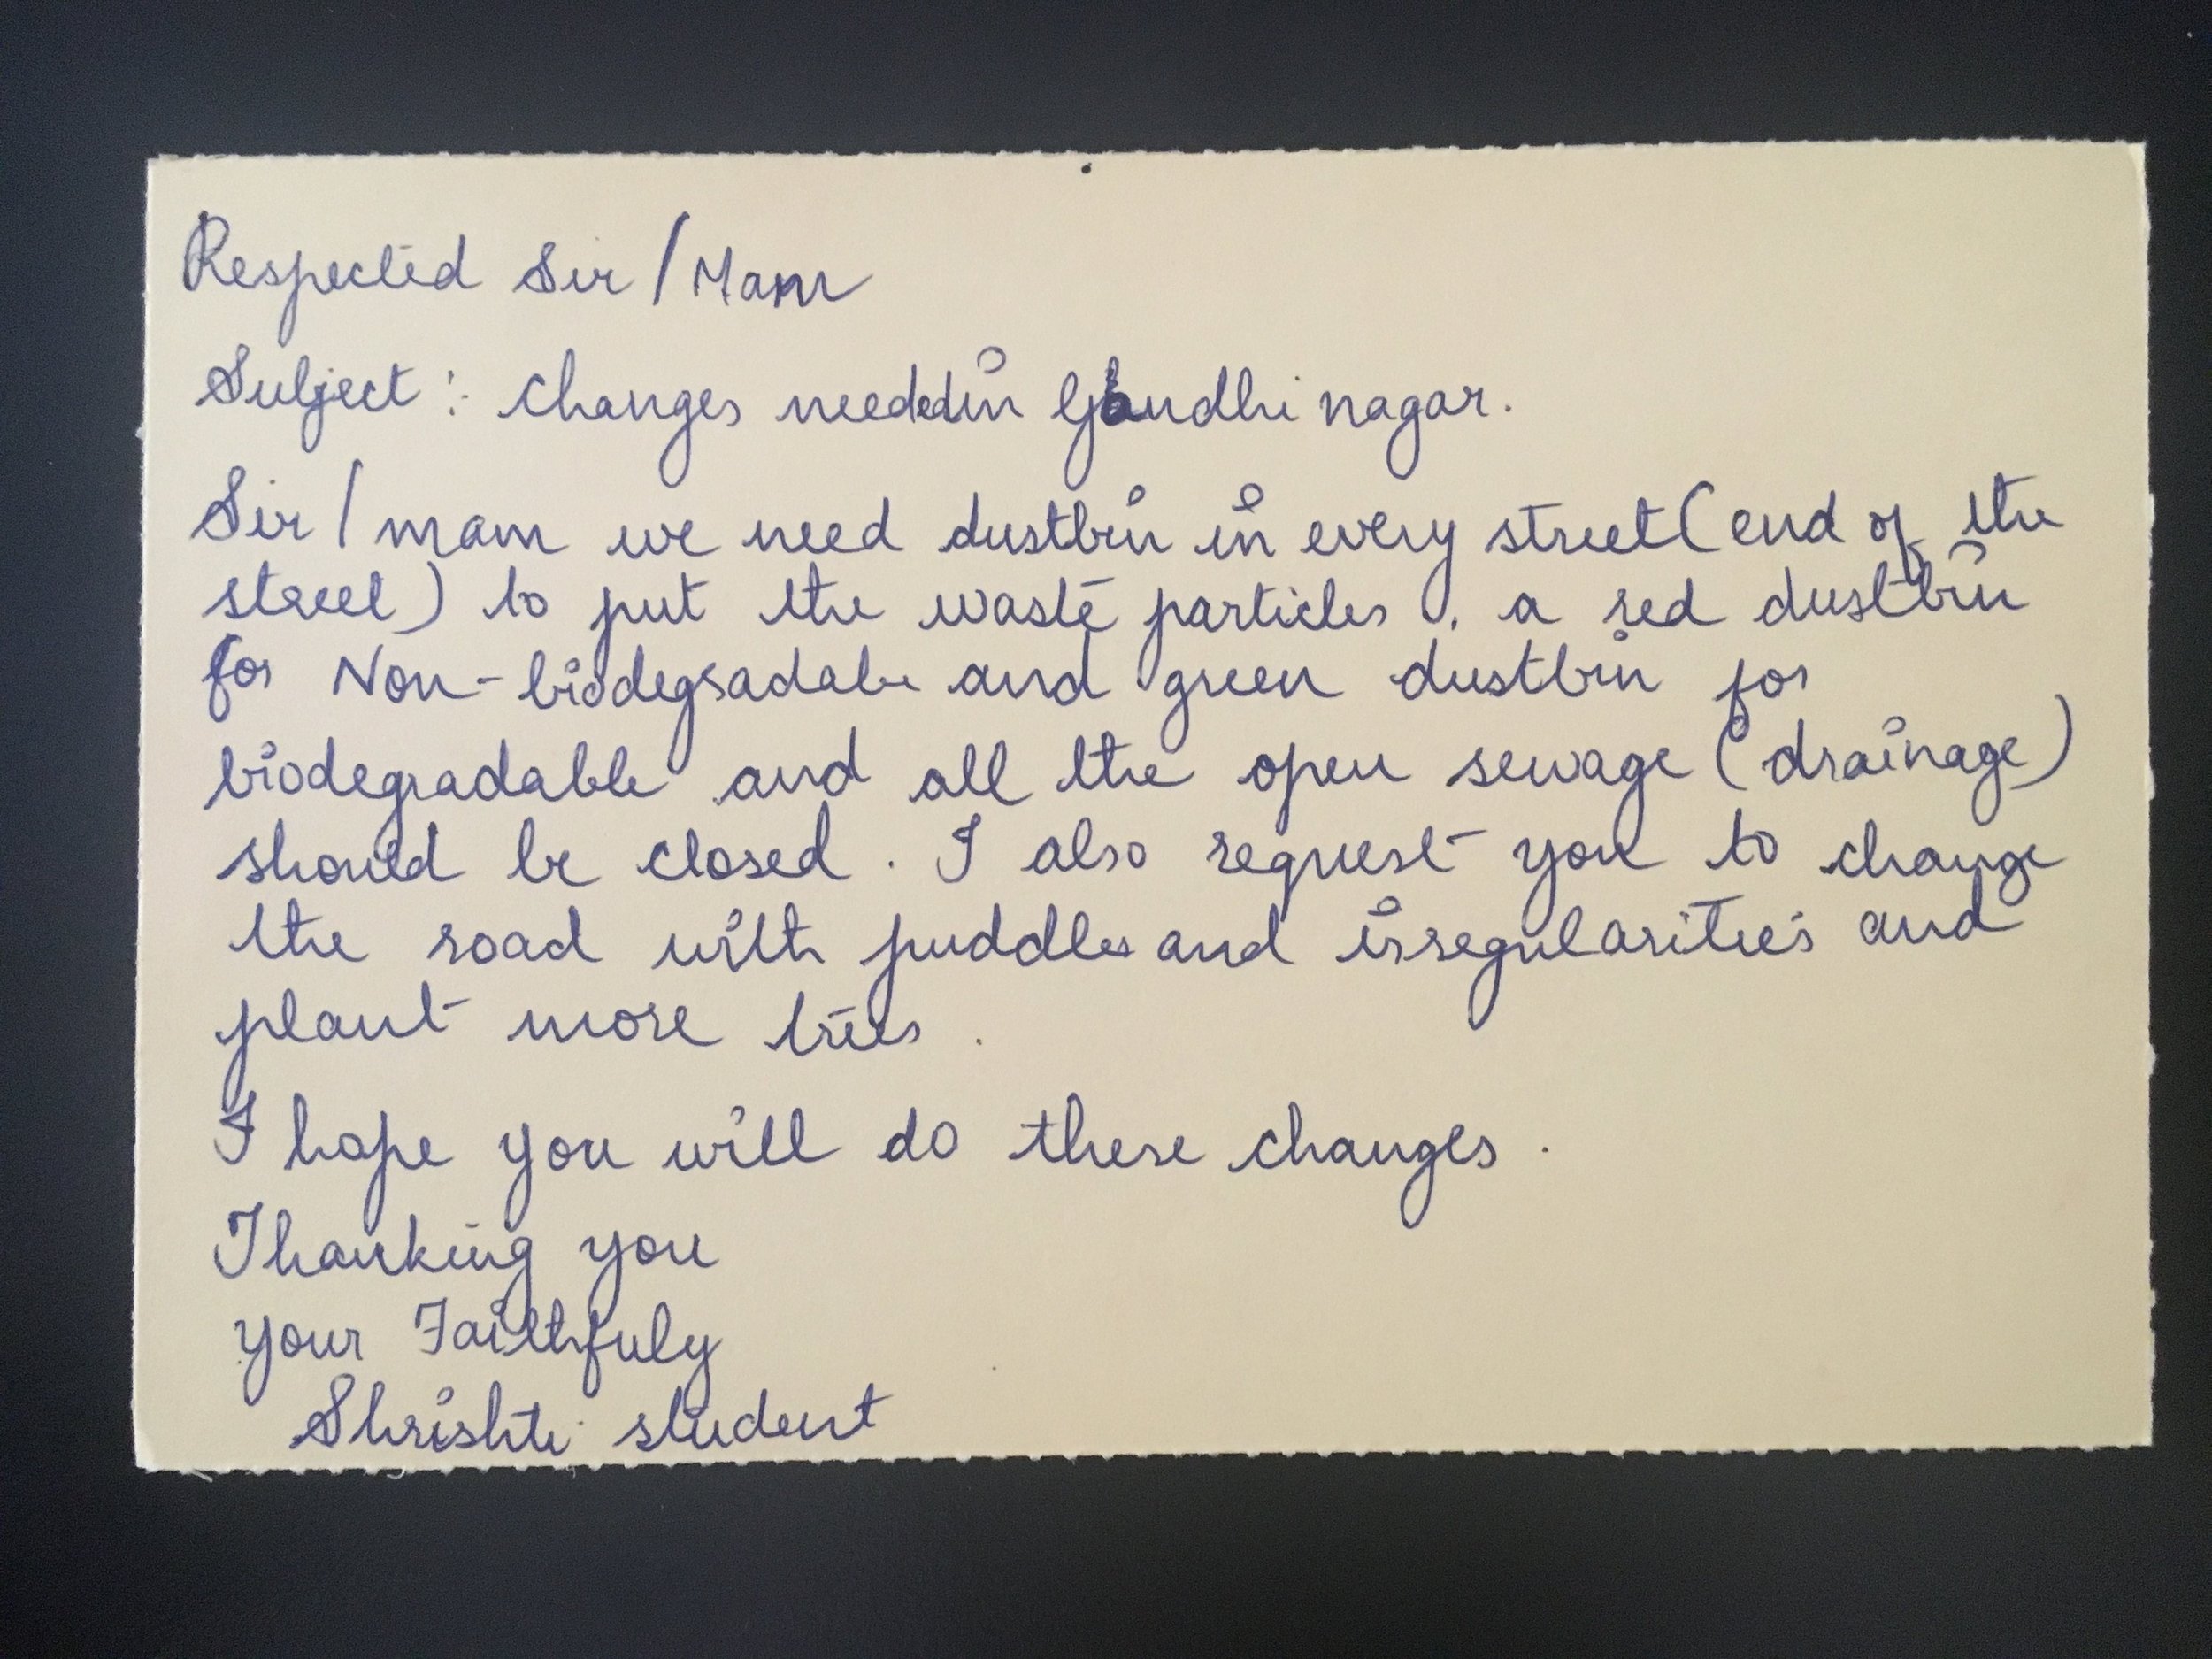 Respected Sir / Mam
Subject : changes needed in Gandhi nagar.
Sir / mam we need dustbin in every street (end of the
street) to put the waste particles , a red dustbin
for Non-biodegradabe and green dustbin for
biodegradable and all the open sewage (drainage)
should be closed . I also request you to change
the road with puddles and irregularities and
plant more trees .
I hope you will do these changes .
Thanking you
your Faithfuly
Shrishti student